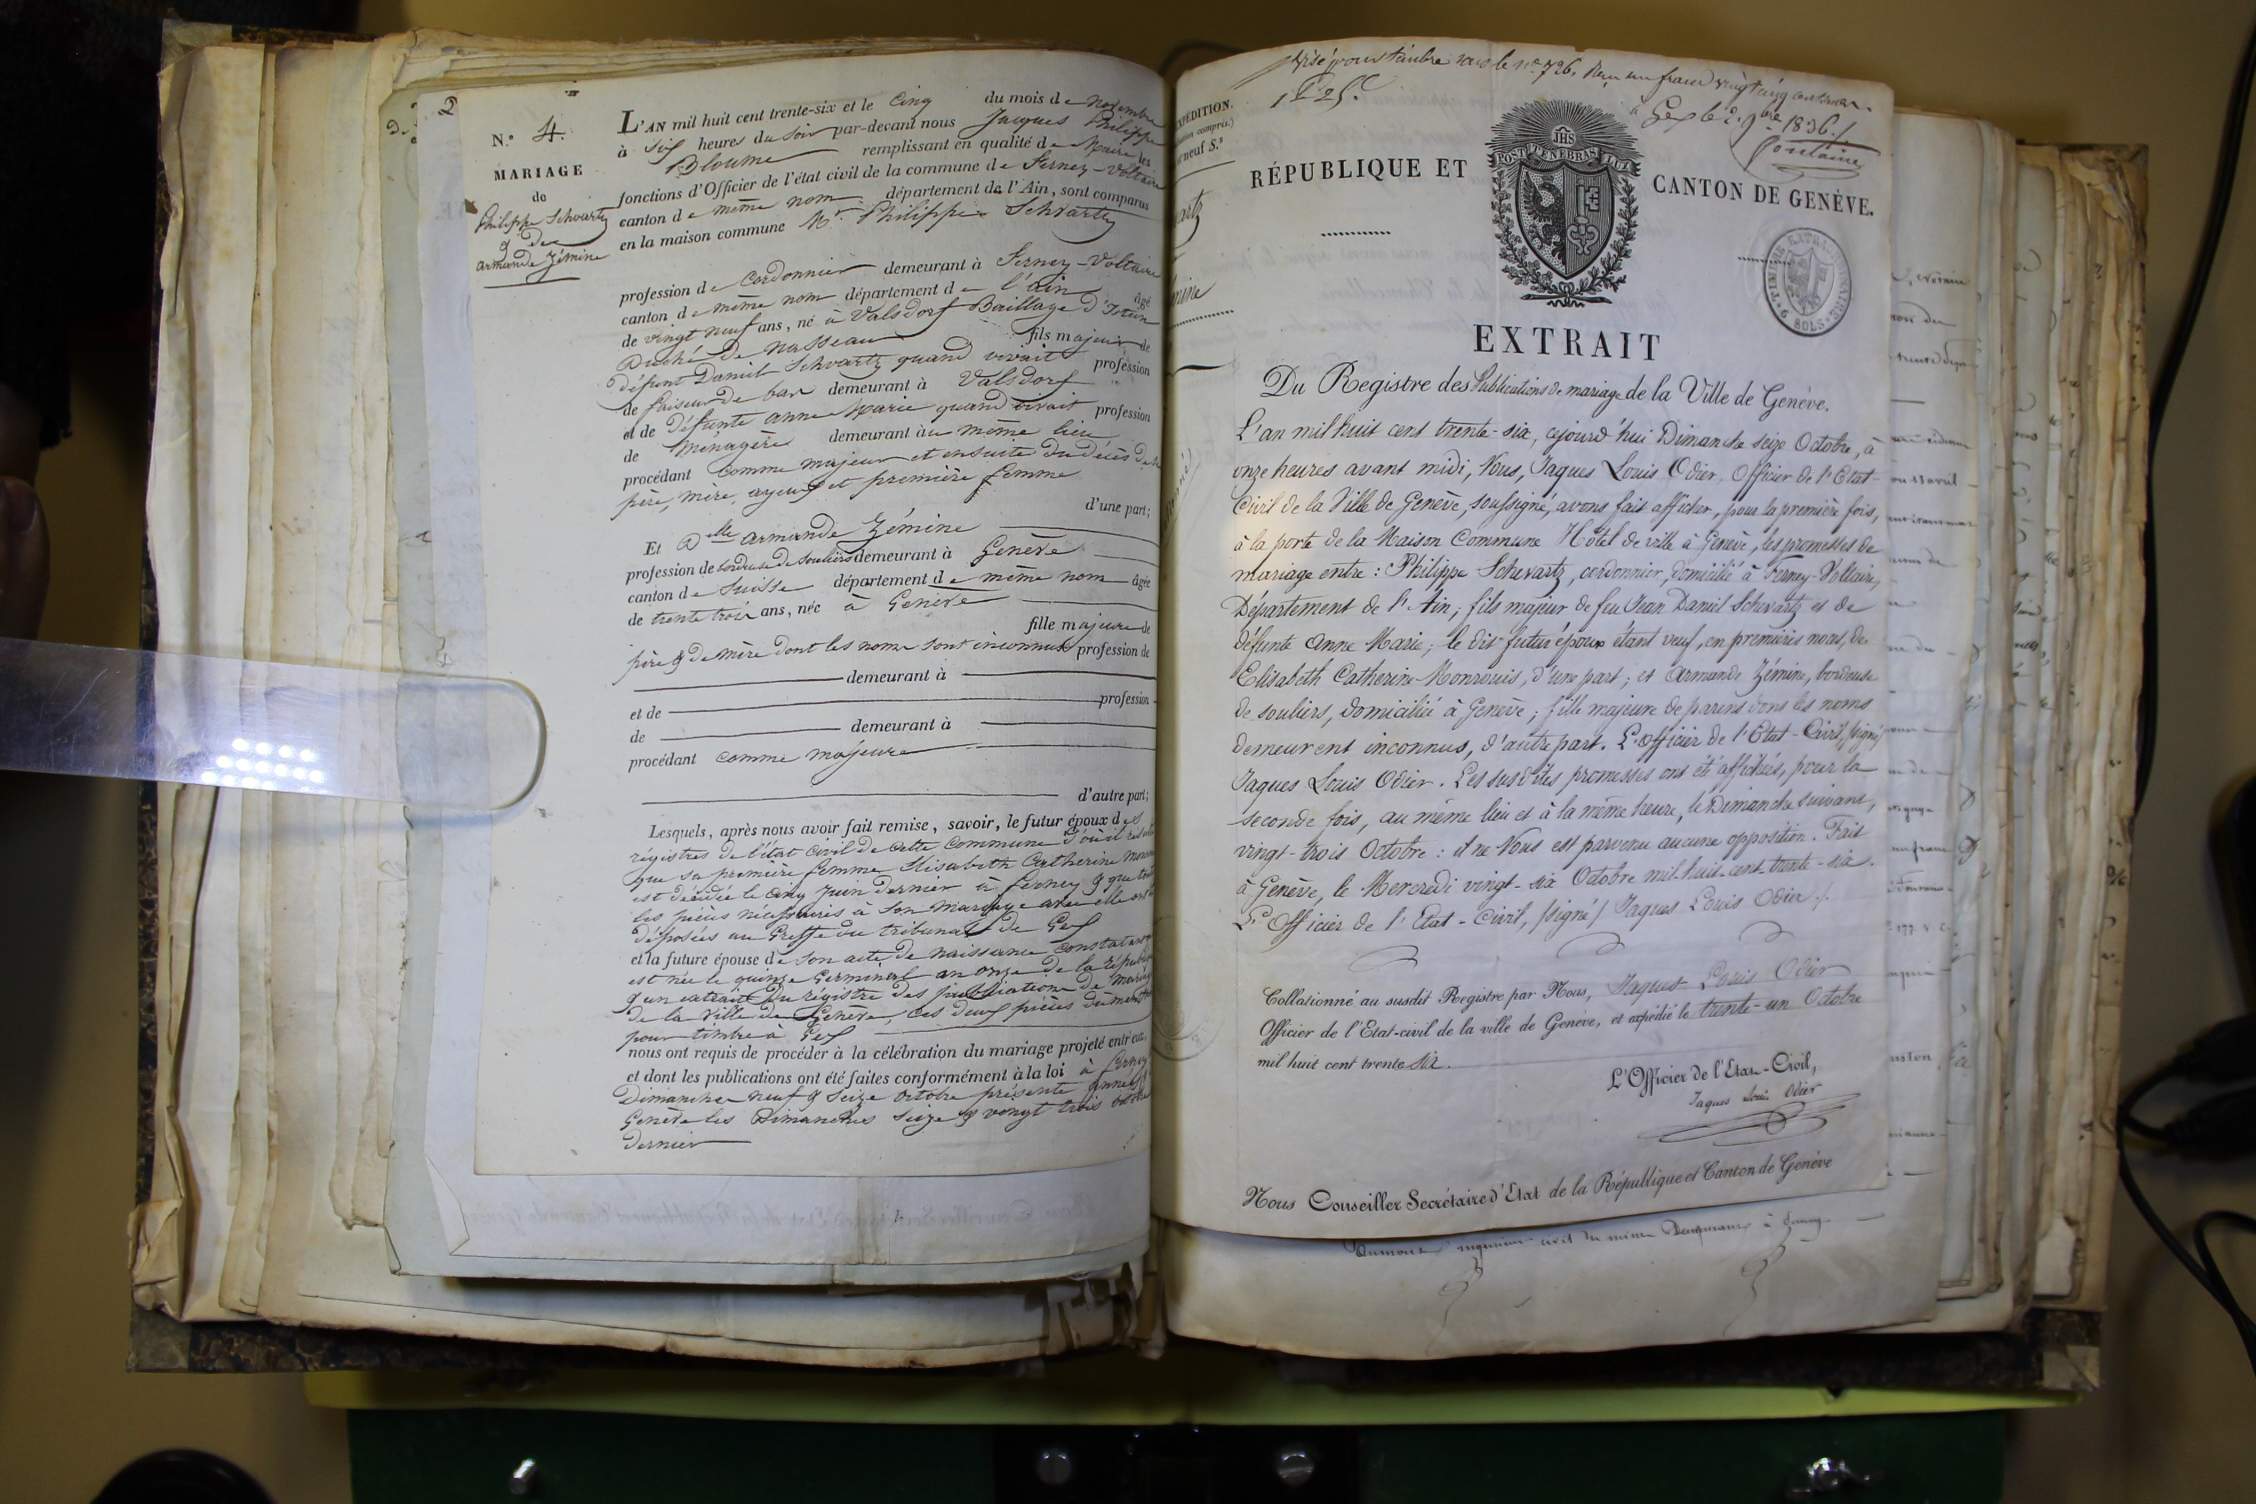 2
N.° 4.
MARIAGE
de
Philippe Schvartz
& de
armande Zémine
L'AN mil huit cent trente-six et le Cinq du mois de Novembre
à six heures du soir par-devant nous Jacques Philippe
Bloume remplissant en qualité de Maire les
fonctions d'Officier de l'état civil de la commune de Ferney-Voltaire
canton de même nom département de l'Ain, sont comparus
en la maison commune Mr. Philippe Schvartz
profession de Cordonnier demeurant à Ferney-Voltaire
canton de même nom département de l'ain âgé
de vingt neuf ans, né à Valsdorf Baillage d'
Duché de Nasseau fils majeur de
défunt Daniel Schvartz quand vivait profession
de faiseur de bas demeurant à Valsdorf
et de défunte anne Marie quand vivait profession
de Ménagère demeurant au même lieu
procédant comme majeur et ensuite du décès de
père, mère, ayeux et première femme
d'une part;
Et Dlle armande Zémine
profession de bordeuse de souliers demeurant à Genève
canton de Suisse département de même nom âgée
de trente trois ans, née à Genève
fille majeure de
père & de mère dont les noms sont inconnus profession de
demeurant à
et de profession
de demeurant à
procédant comme majeure
d'autre part;
Lesquels, après nous avoir fait remise, savoir, le futur époux des
régistres de l'état civil de cette commune d'où il résulte
que sa première femme Elisabeth Catherine
est décédée le cinq Juin dernier à ferney & que
les pièces nécessaires à son mariage avec elle ont
déposées au Greffe du tribunal de Gex
et la future épouse de son acte de naissance constatant
est née le quinze Germinal an onze de la république
& un extrait du régistre des publications de mariage
de la Ville de Genève, ces deux pièces
pour timbre à Gex
nous ont requis de procéder à la célébration du mariage projeté entr'eux,
et dont les publications ont été faites conformément à la loi à ferney
Dimanches neuf & seize octobre présente année &
Genève les Dimanches seize & vingt trois octobre
dernier
Visé pour timbre sous le n.° 726. Reçu un franc vingt cinq centimes.
1f 25c.
à Gex le 2 9bre 1836.
EXPÉDITION.
RÉPUBLIQUE ET CANTON DE GENÈVE.
JHS
POST TENEBRAS LUX
TIMBRE EXTRAORDINAIRE
9 SOLS
EXTRAIT
Du Registre des Publications de mariage de la Ville de Genève.
L'an mil huit cent trente-six, cejourd'hui Dimanche seize Octobre, à
onze heures avant midi, Nous, Jaques Louis Odier, Officier de l'Etat-
Civil de la Ville de Genève, soussigné, avons fait afficher, pour la première fois,
à la porte de la Maison Commune Hôtel de ville à Genève, les promesses de
mariage entre : Philippe Schwartz, cordonnier, domicilié à Ferney-Voltaire,
Département de l'Ain ; fils majeur de feu Jean Daniel Schwartz et de
défunte Anne Marie ; le dit futur époux étant veuf, en premières noces, de
Elisabeth Catherine Monrouis, d'une part ; et Armande Zémine, bordeuse
de souliers, domiciliée à Genève ; fille majeure de parens dont les noms
demeurent inconnus, d'autre part. L'officier de l'Etat-Civil, (signé)
Jaques Louis Odier. Les susdites promesses ont été affichées, pour la
seconde fois, au même lieu et à la même heure, le Dimanche suivant,
vingt-trois Octobre : il ne Nous est parvenu aucune opposition. Fait
à Genève, le Mercredi vingt-six Octobre mil-huit-cent-trente-six.
L'Officier de l'Etat-Civil, (signé) Jaques Louis Odier.
Collationné au susdit Registre par Nous, Jaques Louis Odier
Officier de l'Etat-civil de la ville de Genève, et expédié le trente-un Octobre
mil huit cent trente six.
L'Officier de l'Etat-Civil,
Jaques Louis Odier
Nous Conseiller Secrétaire d'Etat de la République et Canton de Genève